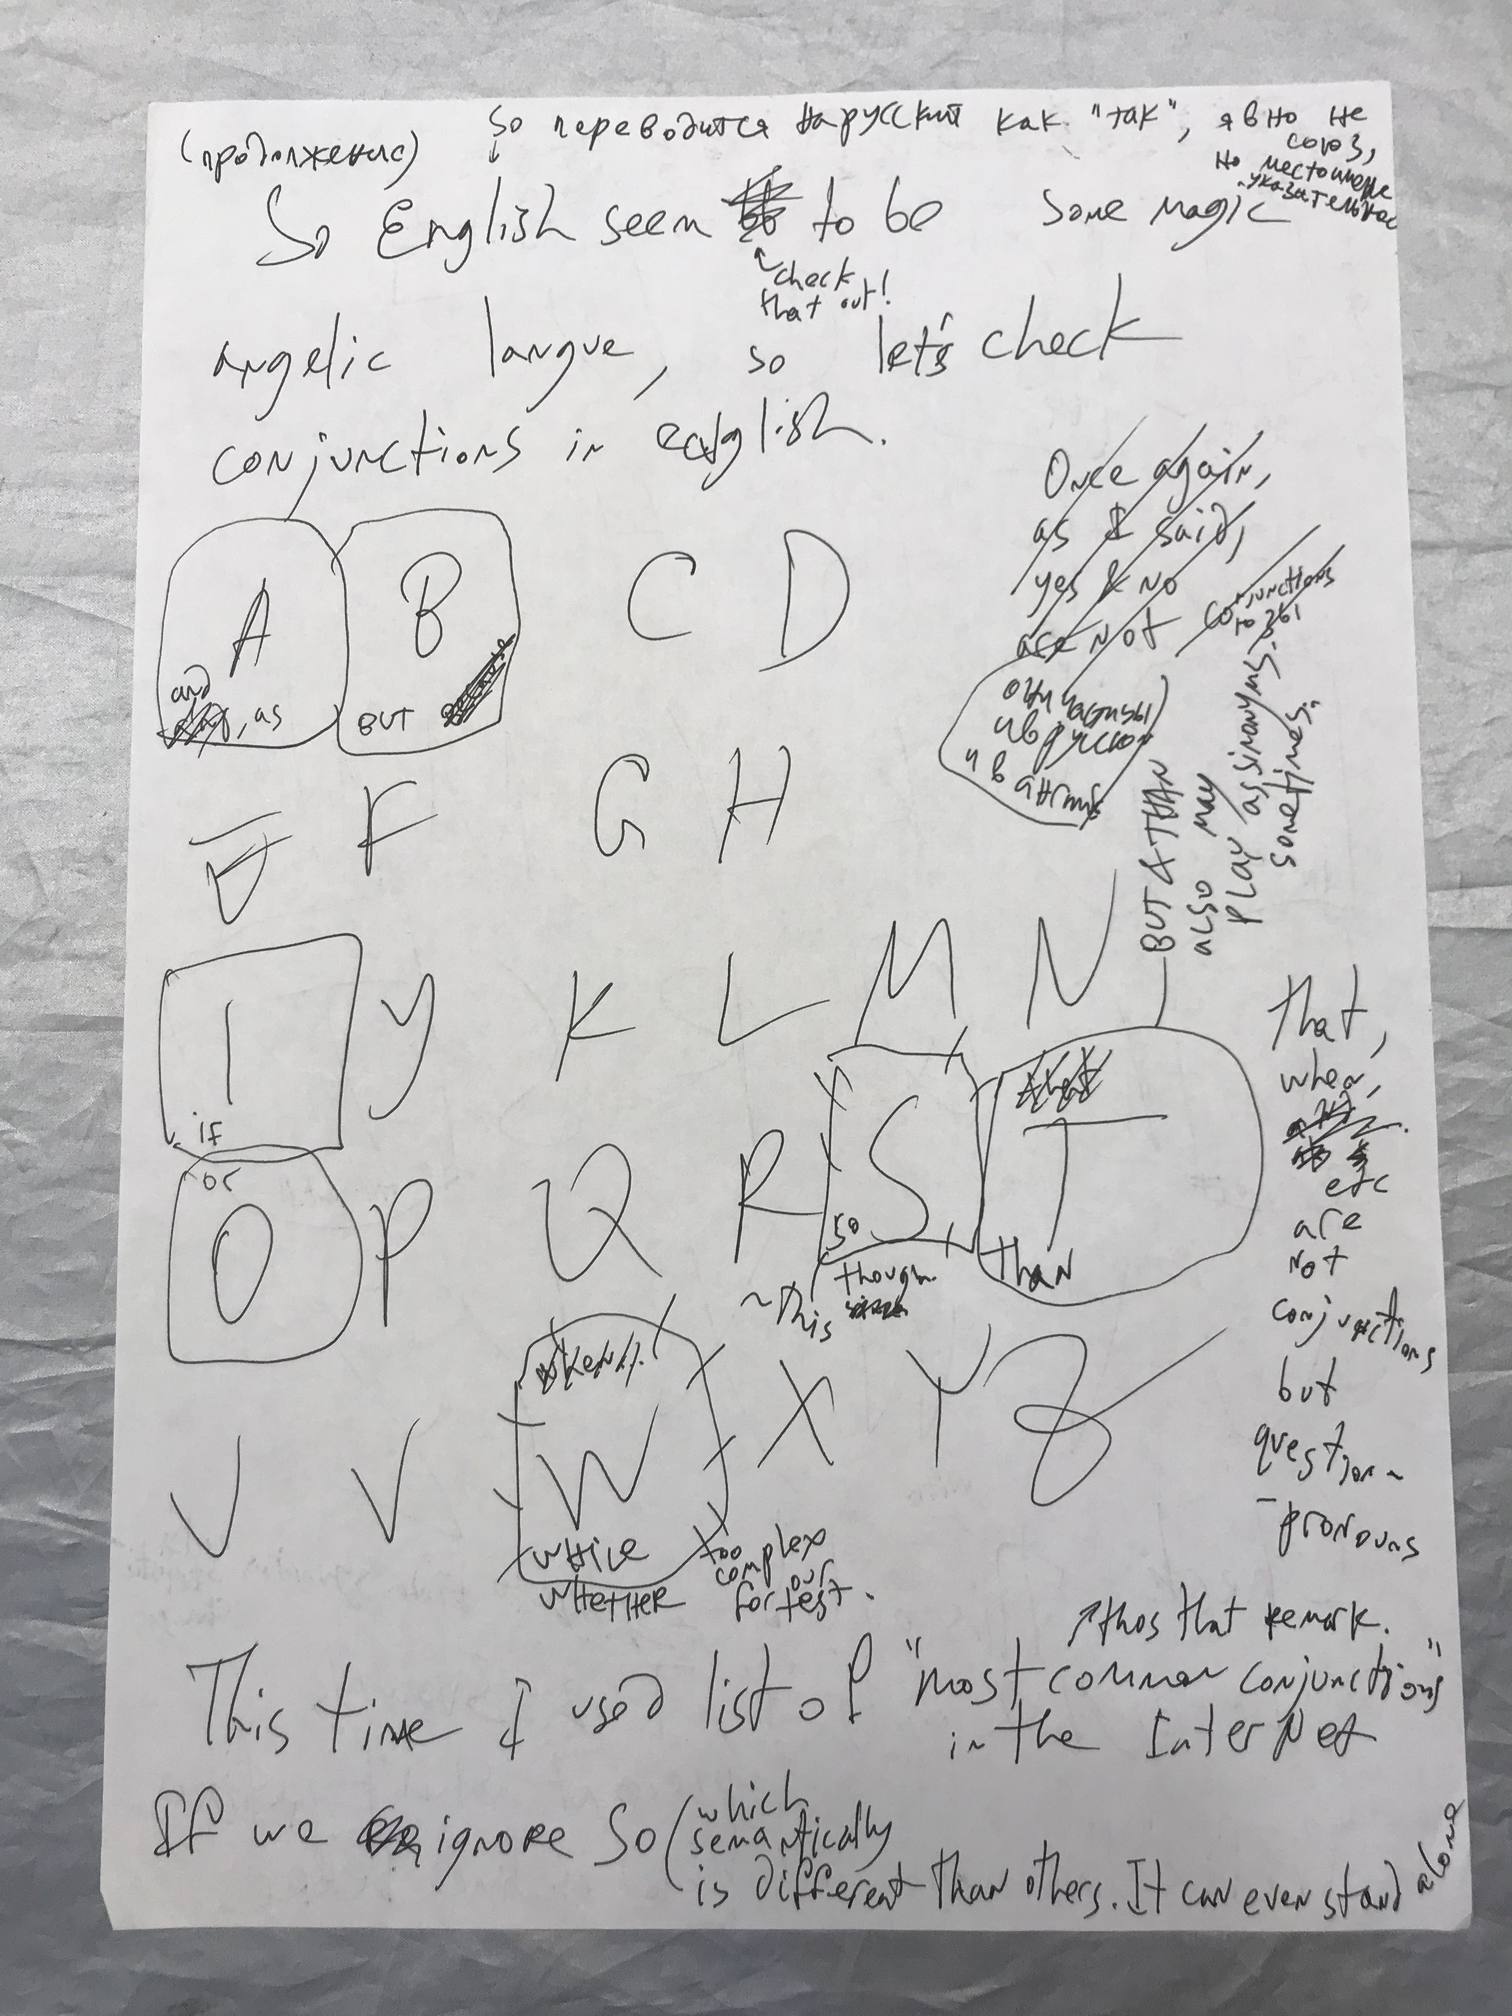 (продолжение)
so переводится на русский как "так", явно не
союз,
но местоимение
указательное
So English seem to be some magic
↑ check
that out!
angelic langue, so let's check
conjunctions in english.
Once again,
as I said,
yes & no
are not conjunctions
они частицы
и в русском
и в англ
A B C D
and
, as
BUT
E F G H
BUT & THAN
also may
play as sinonyms
sometimes.
I J K L M N
if
or
O P Q R S T
so
than
~this
though
that,
when,
etc
are
not
conjunctions
but
question-
-pronouns
U V W X Y Z
when
while
WHETHER
too
complex
for our
test.
↗thos that remark.
This time I used list of "most common conjunctions"
in the InterNet
If we ignore So (which
semantically
is different than others. It can even stand alone